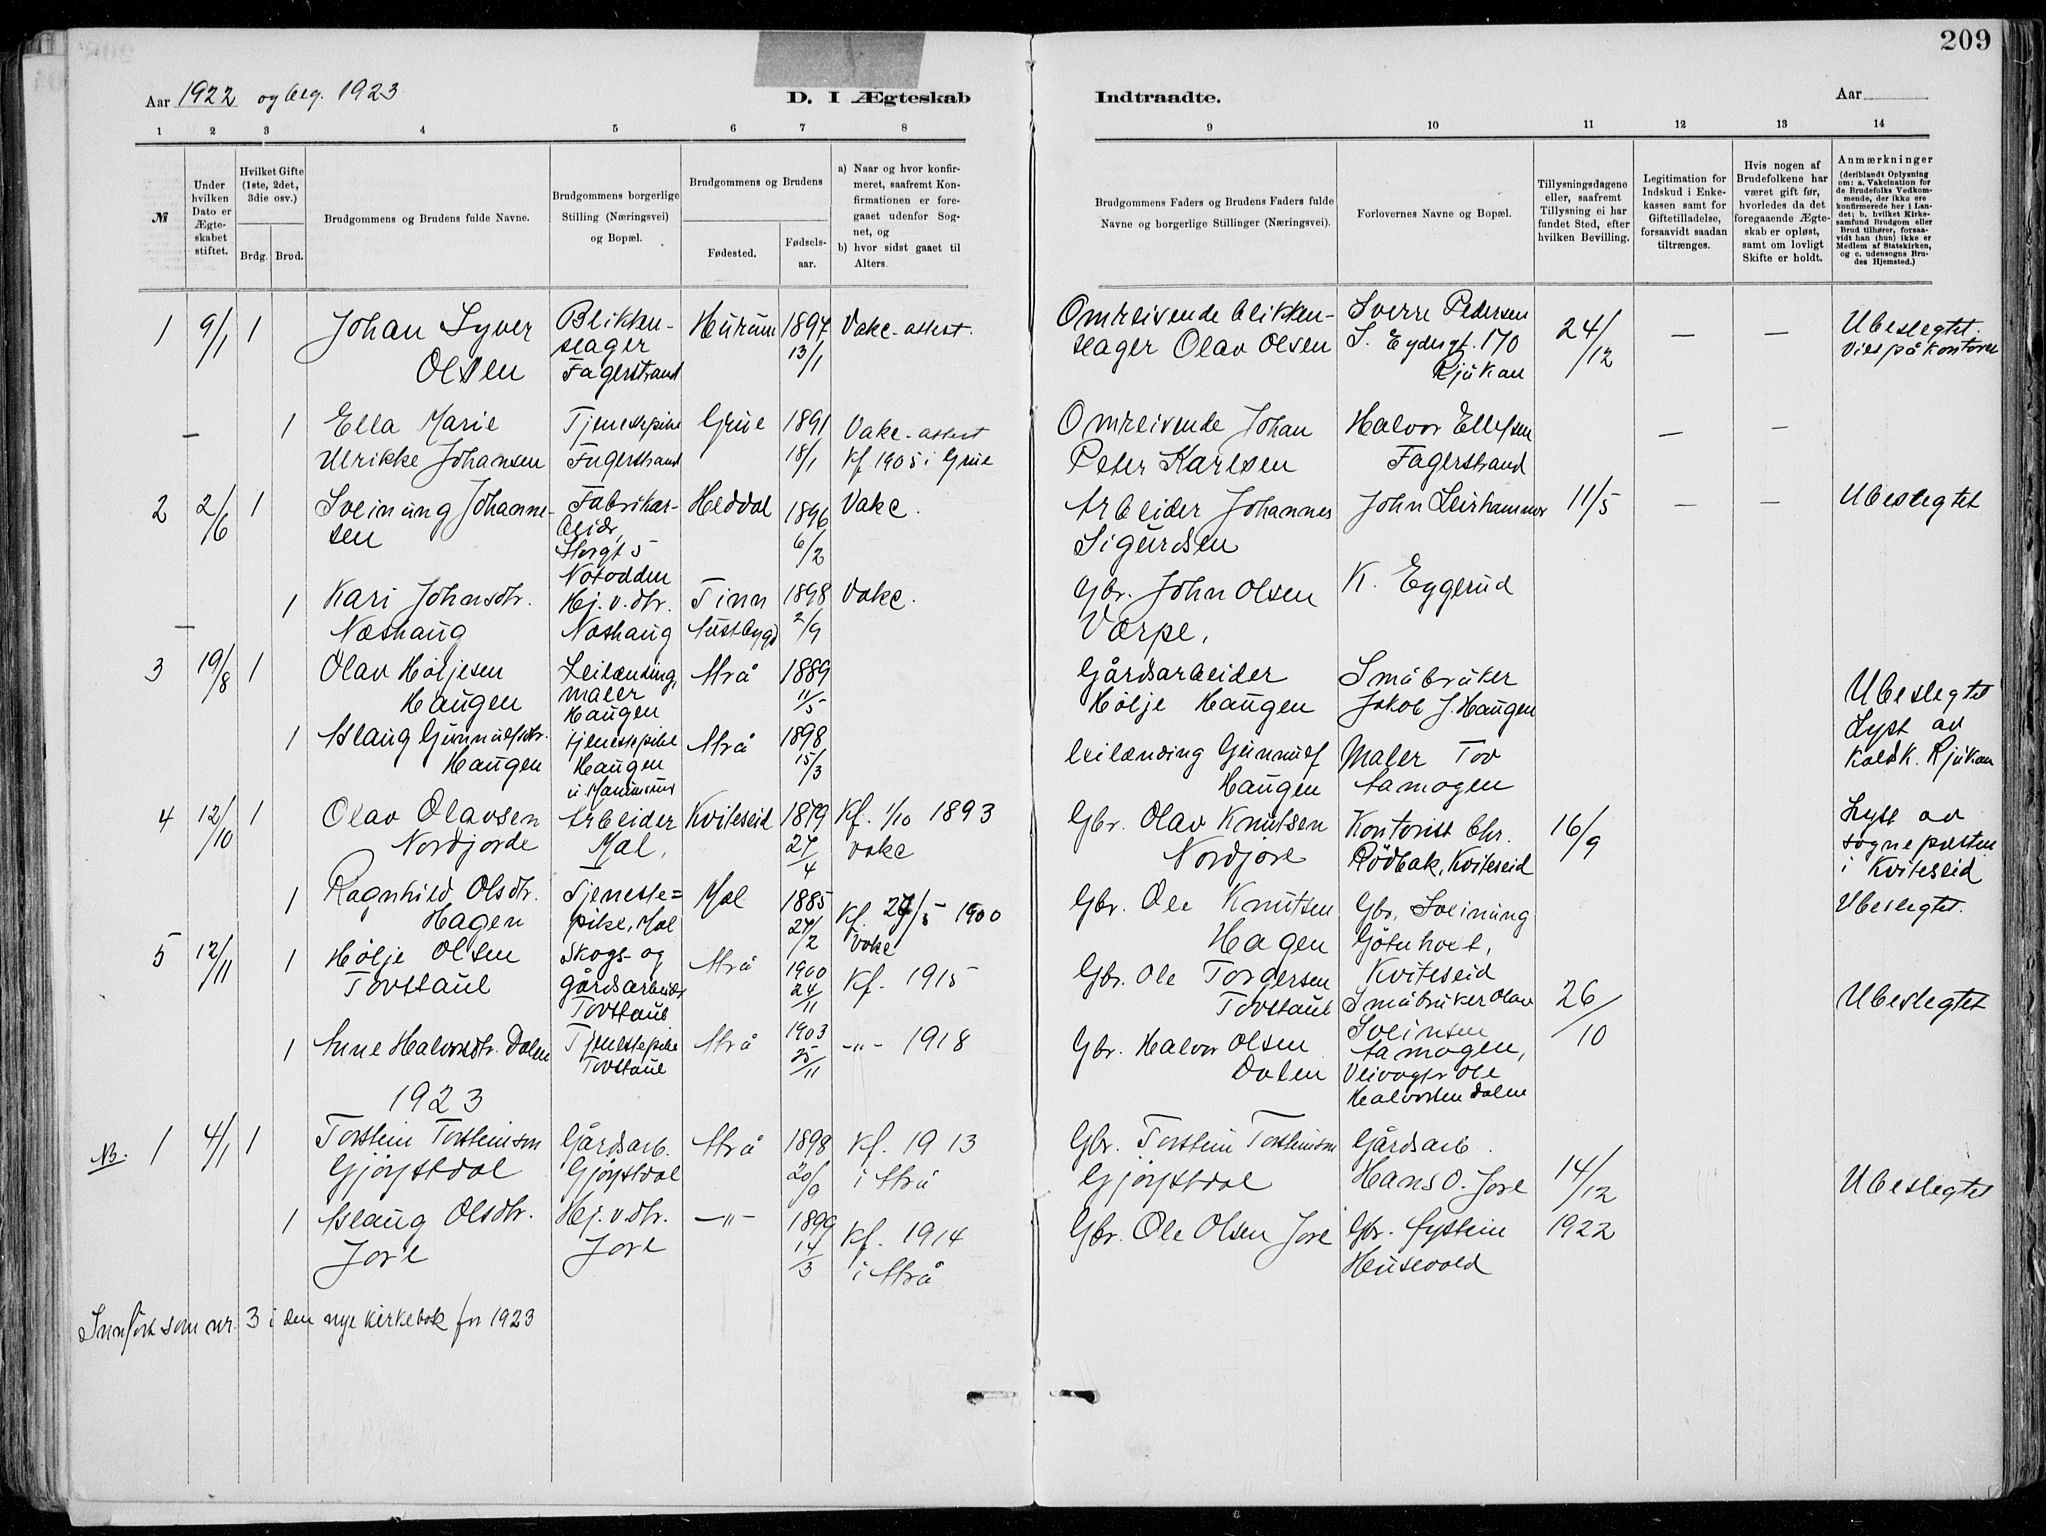 209
Aar 1922 og beg. 1923
D. I Ægteskab Indtraadte.
Aar
1 2 3 4 5 6 7 8 9 10 11 12 13 14
№
Under hvilken Dato er Ægteskabet stiftet.
Hvilket Gifte (1ste, 2det, 3die osv.)
Brdg. Brud.
Brudgommens og Brudens fulde Navne.
Brudgommens borgerlige Stilling (Næringsvei) og Bopæl.
Brudgommens og Brudens
Fødested. Fødselsaar.
a) Naar og hvor konfirmeret, saafremt Konfirmationen er foregaaet udenfor Sognet, og
b) hvor sidst gaaet til Alters.
Brudgommens Faders og Brudens Faders fulde Navne og borgerlige Stillinger (Næringsvei).
Forlovernes Navne og Bopæl.
Tillysningsdagene eller, saafremt Tillysning ei har fundet Sted, efter hvilken Bevilling.
Legitimation for Indskud i Enkekassen samt for Giftetilladelse, forsaavidt saadan tiltrænges.
Hvis nogen af Brudefolkene har været gift før, hvorledes da det foregaaende Ægteskab er opløst, samt om lovligt Skifte er holdt.
Anmærkninger (deriblandt Oplysning om: a. Vakcination for de Brudefolks Vedkommende, der ikke ere konfirmerede her i Landet; b. hvilket Kirkesamfund Brudgom eller Brud tilhører, forsaavidt han (hun) ikke er Medlem af Statskirken, og c. udensogns Brudes Hjemsted.)
1 9/1 1 Johan Syver Olsen Blikkenslager Fagerstrand Hurum 1897 13/1 Vakc. attest. Omreisende blikkenslager Olav Olsen Sverre Pedersen S. Eydesgt. 170 Rjukan 24/12 — — Ubeslegtet. Viet på kontoret
— 1 Ella Marie Ulrikke Johansen Tjenestepike Fagerstrand Grue 1891 18/1 Vakc. attest Kf. 1905 i Grue Omreisende Johan Peter Karlsen Halvor Ellefsen Fagerstrand — —
2 2/6 1 Sveinung Johannesen Fabrikarbeider, Storgt 5 Notodden Heddal 1896 6/2 Vakc. Arbeider Johannes Sigurdsen John Leirhammer 11/5 — — Ubeslegtet
— 1 Kari Johnsdtr. Næshaug Hj. v. dtr. Næshaug Tinn Austbygd 1898 2/9 Vakc. Gbr. John Olsen Værpe, K. Eggerud
3 19/8 1 Olav Høljesen Haugen Leilænding, maler Haugen Atrå 1889 11/5 Gårdsarbeider Hølje Haugen Småbruker Jakob J. Haugen Ubeslegtet
1 Aslaug Gunnulfsdtr. Haugen Tjenestepike Haugen Atrå 1898 15/3 Leilænding Gunnulf Haugen Maler Tov Aamogen Lyst av Rjukan
4 12/10 1 Olav Olavsen Nordjorde Arbeider Mæl, Kviteseid 1879 27/4 Kf. 1/10 1893 Vakc Gbr. Olav Knutsen Nordjore Kontorist Chr. Rödbak, Kviteseid 16/9 Lyst av sognepresten i Kviteseid
1 Ragnhild Olsdtr. Hagen Tjenestepike, Mæl Mæl 1885 27/2 Kf. 27/5 1900 Vakc Gbr. Ole Knutsen Hagen Gbr. Sveinung Kviteseid Ubeslegtet.
5 12/11 1 Hølje Olsen Tovstaul Skogs- og gårdsarbeider Tovstaul Atrå 1900 24/11 Kf. 1915 Gbr. Ole Torgersen Tovstaul Småbruker Olav Sveinsen Aamogen, 26/10 Ubeslegtet
1 Anne Halvorsdtr. Dalen Tjenestepike Tovstaul Atrå 1903 25/11 -"- 1918 Gbr. Halvor Olsen Dalen Veivogter Ole Halvorsen Dalen
1923
NB. 1 4/1 1 Torstein Torsteinson Gjøystdal Gårdsarb. Gjøystdal Atrå 1898 20/9 Kf. 1913 i Atrå Gbr. Torstein Torsteinson Gjøystdal Gårdsarb. Hans O. Jore 14/12 1922 Ubeslegtet
1 Aslaug Olsdtr. Jore Hj. v. dtr. Jore -"- 1899 14/3 Kf. 1914 i Atrå Gbr. Ole Olsen Jore Gbr. Øystein Husevold
Innfört som nr. 3 i den nye kirkebok for 1923